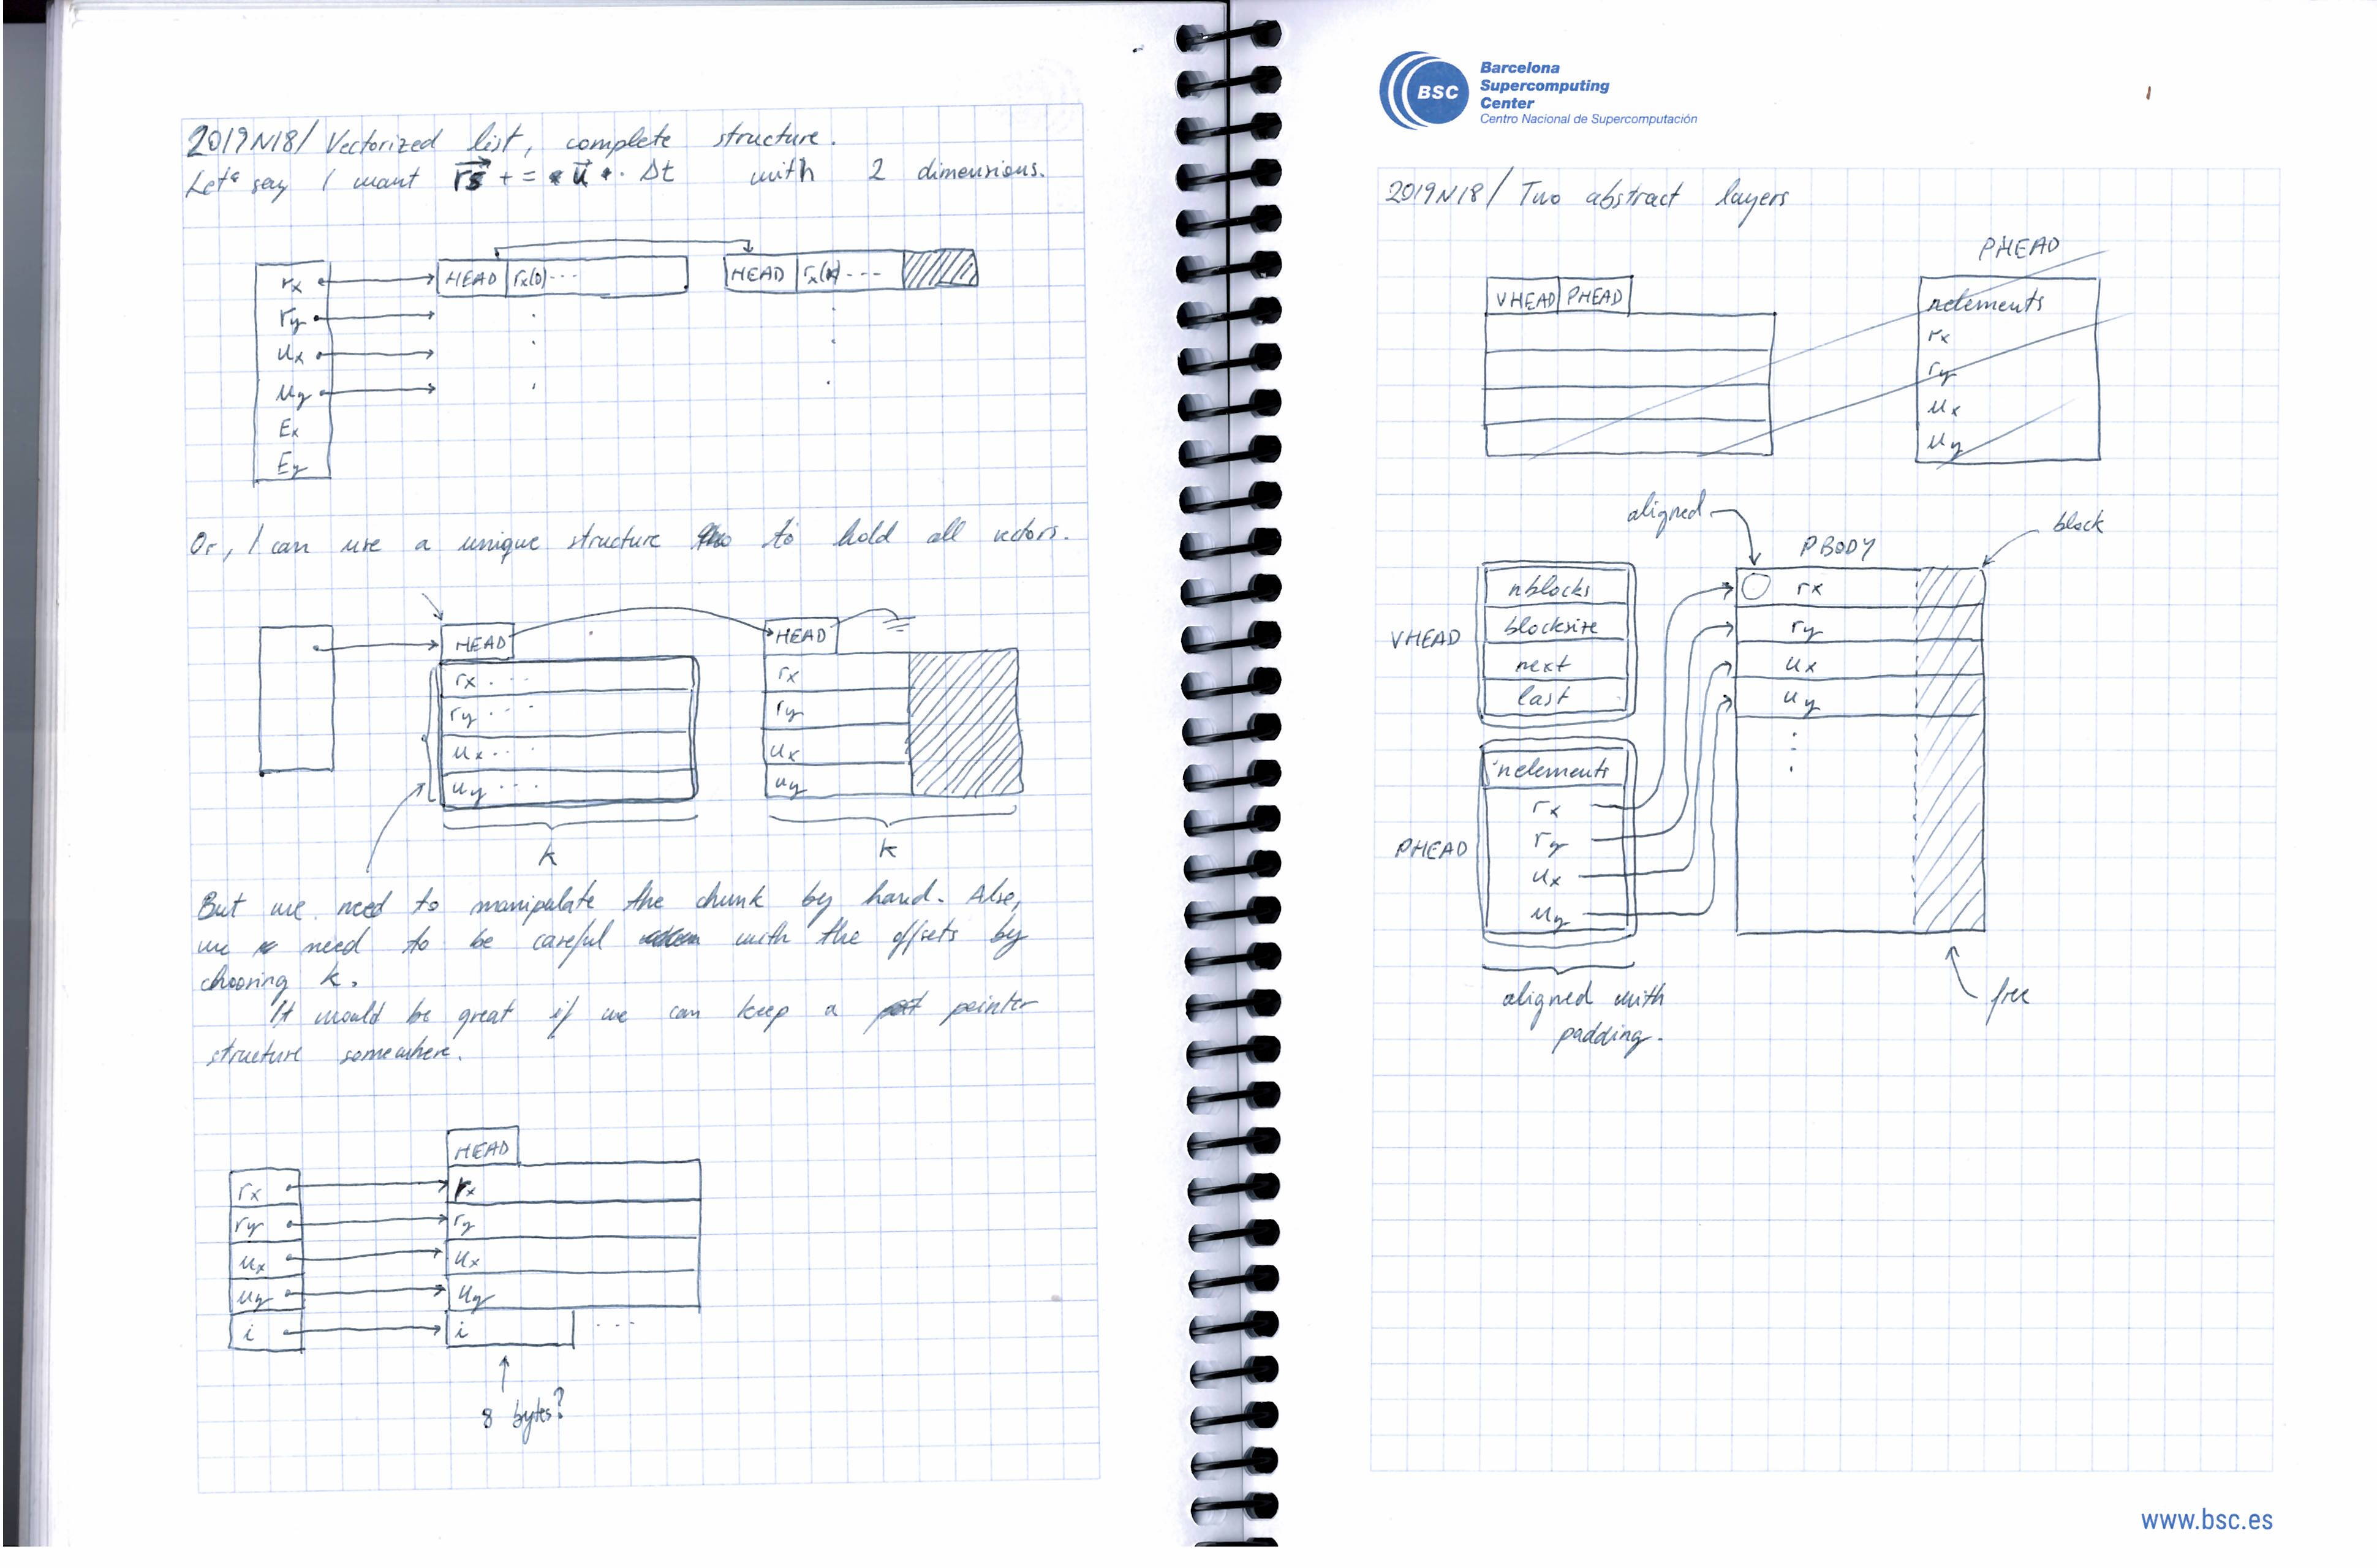 2019N18/ Vectorized list, complete structure.
Let's say I want r += u · Δt with 2 dimensions.
rx
HEAD rx(0) ...
HEAD rx(k) ---
ry
ux
uy
Ex
Ey
Or, I can use a unique structure to hold all vectors.
HEAD
HEAD
rx ...
rx
ry ...
ry
ux ...
ux
uy ...
uy
k
k
But we need to manipulate the chunk by hand. Also,
we need to be careful with the offsets by
choosing k.
It would be great if we can keep a pointer
structure somewhere.
HEAD
rx
rx
ry
ry
ux
ux
uy
uy
i
i ...
8 bytes?
BSC
Barcelona
Supercomputing
Center
Centro Nacional de Supercomputación
2019N18/ Two abstract layers
PHEAD
VHEAD PHEAD
nelements
rx
ry
ux
uy
aligned
block
PBODY
nblocks
rx
VHEAD
blocksize
ry
next
ux
last
uy
nelements
rx
PHEAD
ry
ux
uy
aligned with
padding.
free
www.bsc.es